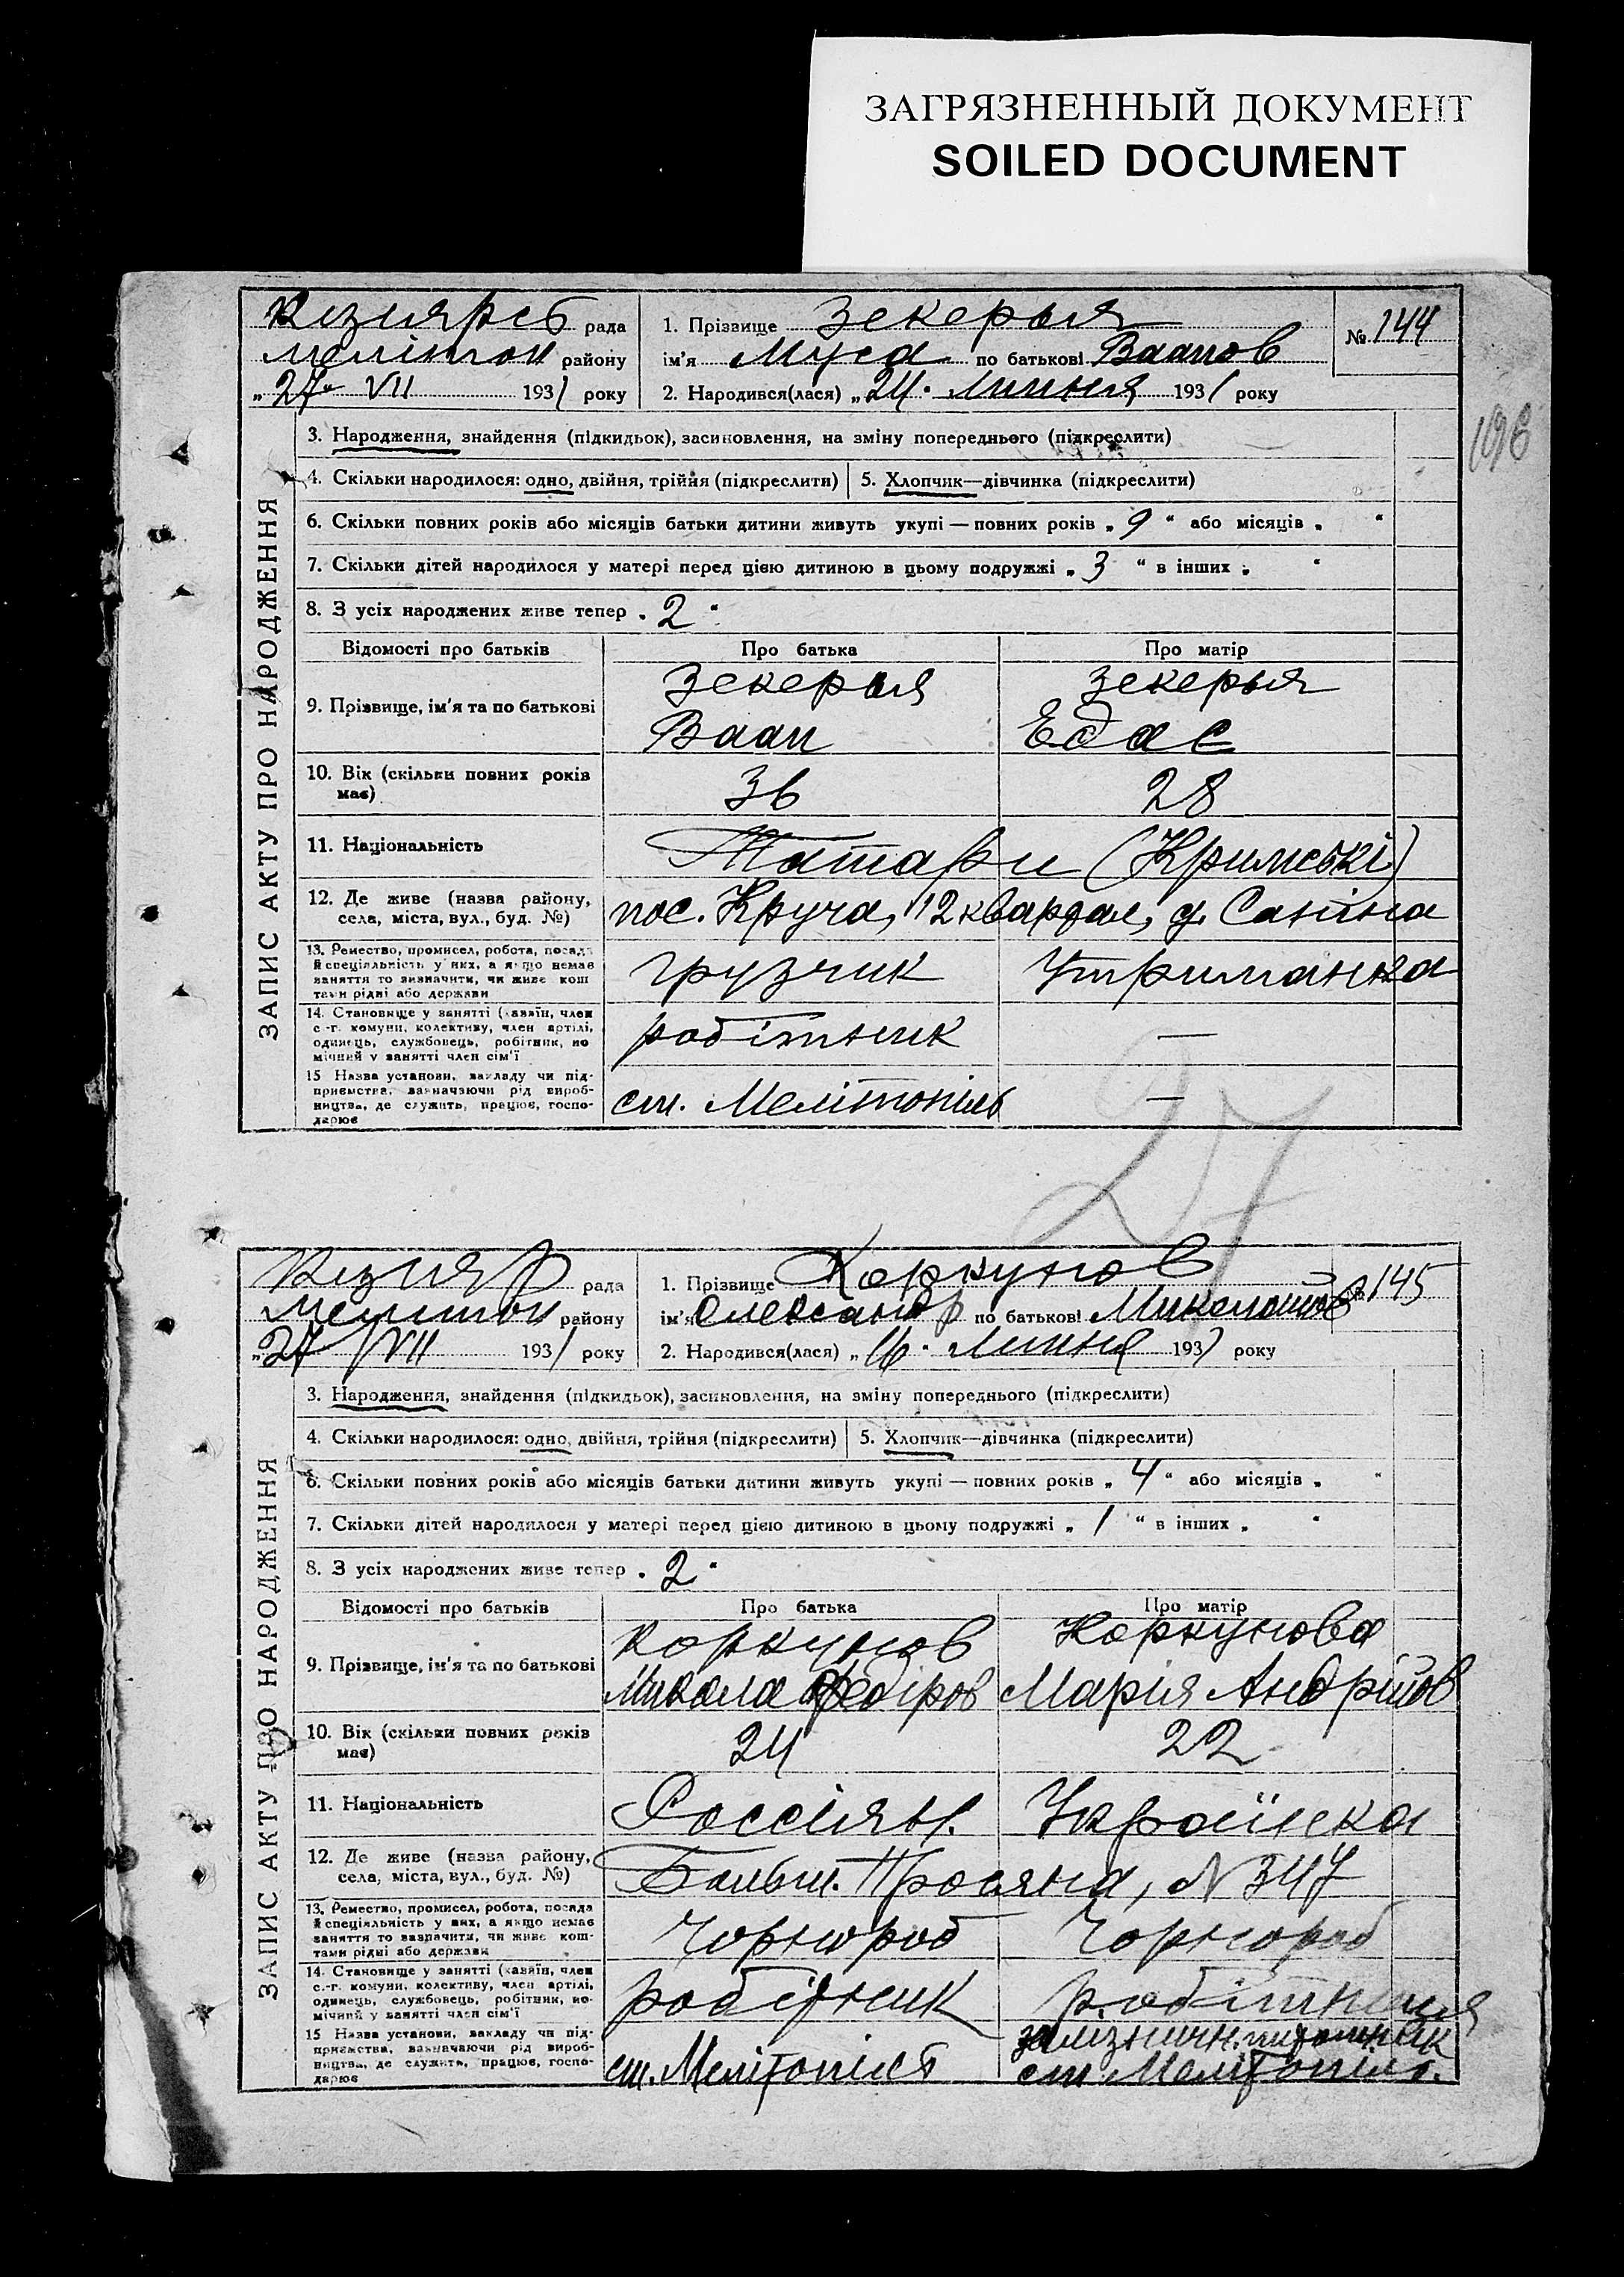 ЗАГРЯЗНЕННЫЙ ДОКУМЕНТ
SOILED DOCUMENT
Кізиярсь рада
Мелітоп району
„27“ VII 1931 року
1. Прізвище Зекерья
ім'я Муса по батькові Ваапов
2. Народився(лася) „24“ Липня 1931 року
№ 144
198
ЗАПИС АКТУ ПРО НАРОДЖЕННЯ
3. Народження, знайдення (підкидьок), засиновлення, на зміну попереднього (підкреслити)
4. Скільки народилося: одно, двійня, трійня (підкреслити) 5. Хлопчик—дівчинка (підкреслити)
6. Скільки повних років або місяців батьки дитини живуть укупі — повних років „ 9 “ або місяців „ “
7. Скільки дітей народилося у матері перед цією дитиною в цьому подружжі „ 3 “ в інших „ “
8. З усіх народжених живе тепер „ 2 “
Відомості про батьків Про батька Про матір
9. Прізвище, ім'я та по батькові Зекерья Ваап Зекерья Едае
10. Вік (скільки повних років має) 36 28
11. Національність Татари (Кримські)
12. Де живе (назва району, села, міста, вул., буд. №) пос. Круча, 12 квартал, д. Саніна
13. Ремество, промисел, робота, посада й спеціяльність у них, а якщо немає заняття то зазначити, чи живе коштами рідні або держави грузчик Утриманка
14. Становище у занятті (хазяїн, член с.-г. комуни, колективу, член артілі, одинець, службовець, робітник, помічний у занятті член сім'ї робітник —
15 Назва установи, закладу чи підприємства, зазначаючи рід виробництва, де служить, працює, господарює ст. Мелітопіль —
27
Кізияр рада
Мелітоп району
„27“ VII 1931 року
1. Прізвище Коркунов
ім'я Олександр по батькові Миколайов
2. Народився(лася) „16“ Липня 1931 року
№ 145
ЗАПИС АКТУ ПРО НАРОДЖЕННЯ
3. Народження, знайдення (підкидьок), засиновлення, на зміну попереднього (підкреслити)
4. Скільки народилося: одно, двійня, трійня (підкреслити) 5. Хлопчик—дівчинка (підкреслити)
6. Скільки повних років або місяців батьки дитини живуть укупі — повних років „ 4 “ або місяців „ “
7. Скільки дітей народилося у матері перед цією дитиною в цьому подружжі „ 1 “ в інших „ “
8. З усіх народжених живе тепер „ 2 “
Відомості про батьків Про батька Про матір
9. Прізвище, ім'я та по батькові Коркунов Микола Федіров Коркунова Марія Андрійов
10. Вік (скільки повних років має) 24 22
11. Національність Россіян. Українка
12. Де живе (назва району, села, міста, вул., буд. №) Больш. Просяна, N 347
13. Ремество, промисел, робота, посада й спеціяльність у них, а якщо немає заняття то зазначити, чи живе коштами рідні або держави Чорнороб Чорнороб
14. Становище у занятті (хазяїн, член с.-г. комуни, колективу, член артілі, одинець, службовець, робітник, помічний у занятті член сім'ї робітник робітниця
15 Назва установи, закладу чи підприємства, зазначаючи рід виробництва, де служить, працює, господарює ст. Мелітопіль залізничн. питомник ст Мелітопіль.